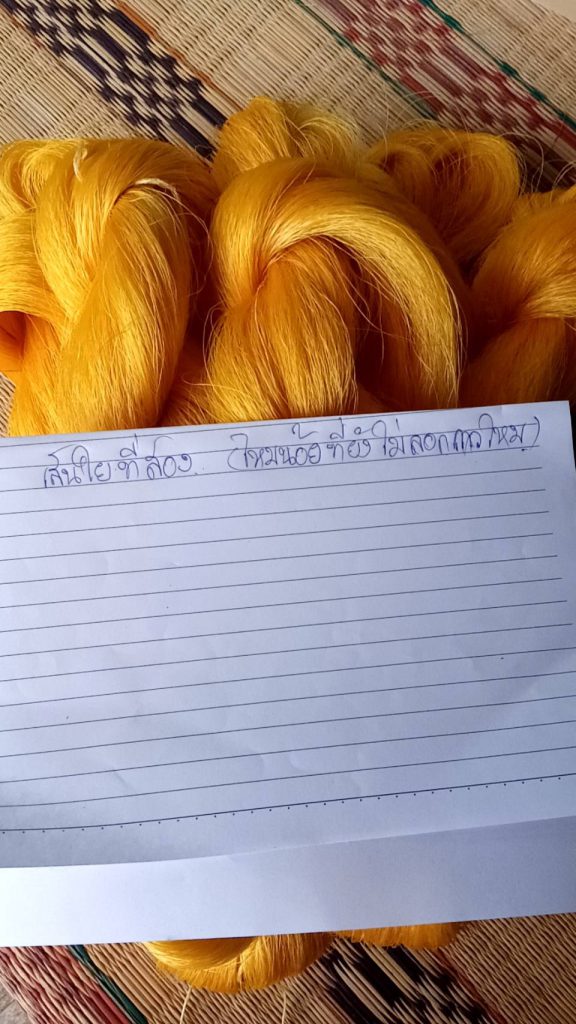 เส้นใยที่สอง (ไหมน้อยที่ยังไม่ลอกกาวไหม)